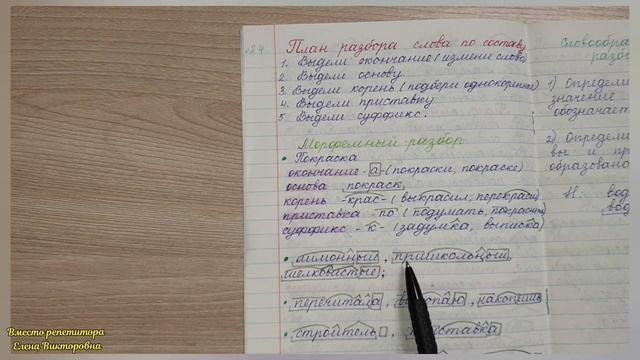 24
План разбора слова по составу
1. Выдели окончание (измени слово)
2. Выдели основу.
3. Выдели корень (подбери однокоренные)
4. Выдели приставку
5. Выдели суффикс.
Морфемный разбор
• Покраска
окончание -а- (покраски, покраске)
основа покраск
корень -крас- (выкрасил, перекраси
приставка - по (подумать, покрасить)
суффикс - к - (задумка, выписка)
• лимонный, пришкольный,
шелковистые;
• перечитала, вскопаю, накопишь
• строитель, подставка
Словообра
разбо
1) Определи
значение
обозначает
2) Определи
вы и пр
образовано
Н: вод
вод
Вместо репетитора
Елена Викторовна